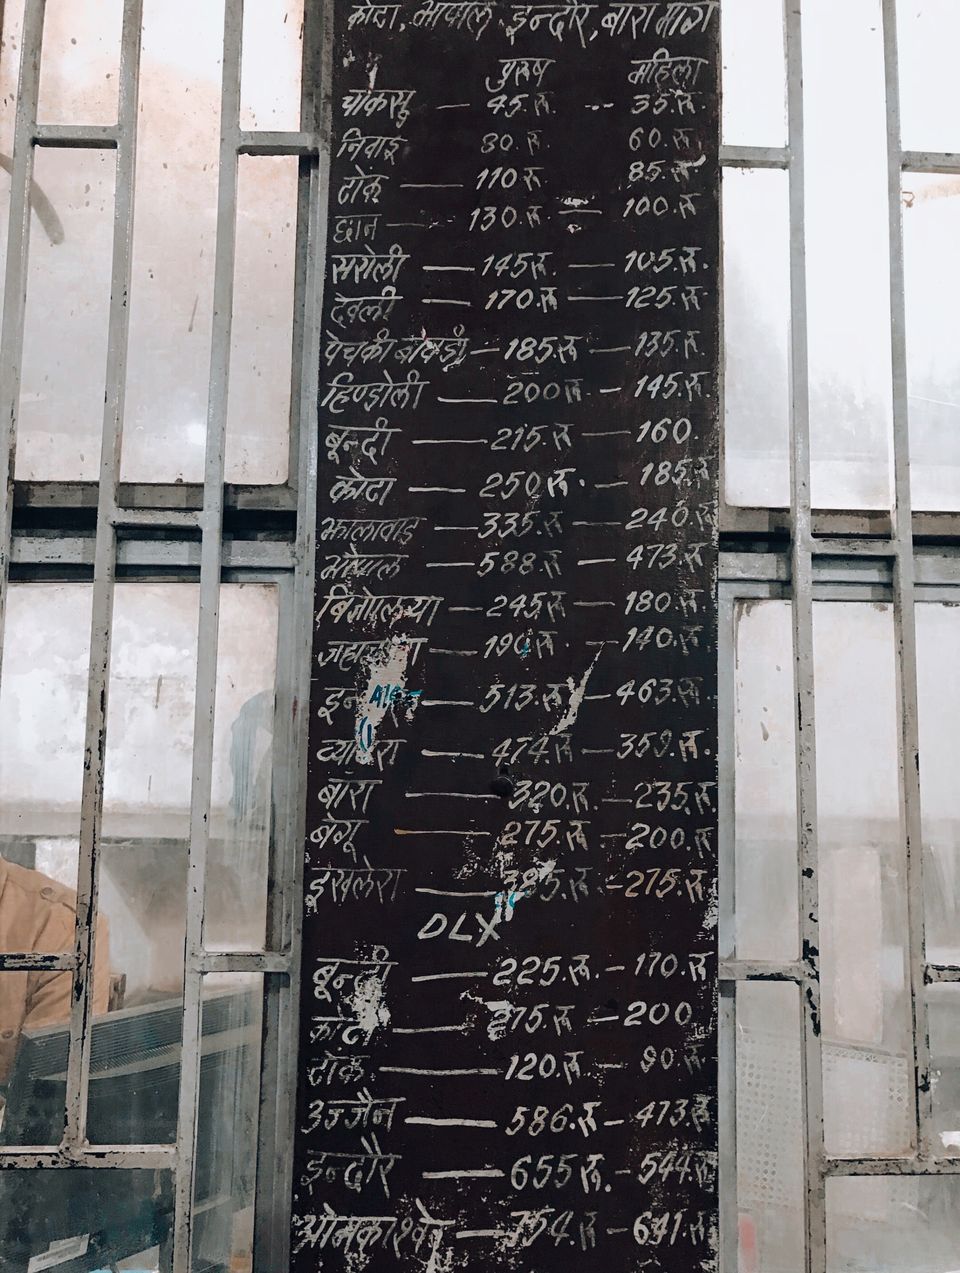 कोटा, भोपाल, इन्दौर, बारा मार्ग
पुरूष महिला
चाकसू — 45.रू. -- 35.रू.
निवाई 80.रू. 60.रू.
टोंक — 110रू 85.रू
छान — 130.रू — 100.रू
सरोली — 145रू. — 105.रू.
देवली — 170.रू — 125.रू
पेचकी बावडी — 185.रू — 135.रू.
हिण्डोली — 200रू — 145.रू
बून्दी — 215.रू — 160.
कोटा — 250रू. - 185.रू
झालावाड़ — 335.रू — 240.रू
भोपाल — 588.रू — 473.रू
बिजोलिया — 245रू — 180.रू
— 190रू. - 140.रू
— 513.रू — 463.रू
— 474.रू — 359.रू.
बांरा — 320.रू. — 235.रू
बेगू — 275.रू — 200.रू
इखलेरा — 385.रू. - 275.रू.
DLX
बून्दी — 225.रू. - 170.रू
कोटा — 275.रू — 200
टोंक — 120.रू. - 90.रू
उज्जैन — 586.रू - 473.रू
इन्दौर — 655रू. - 544.रू
ओमकारेश्वर — 754.रू - 641.रू